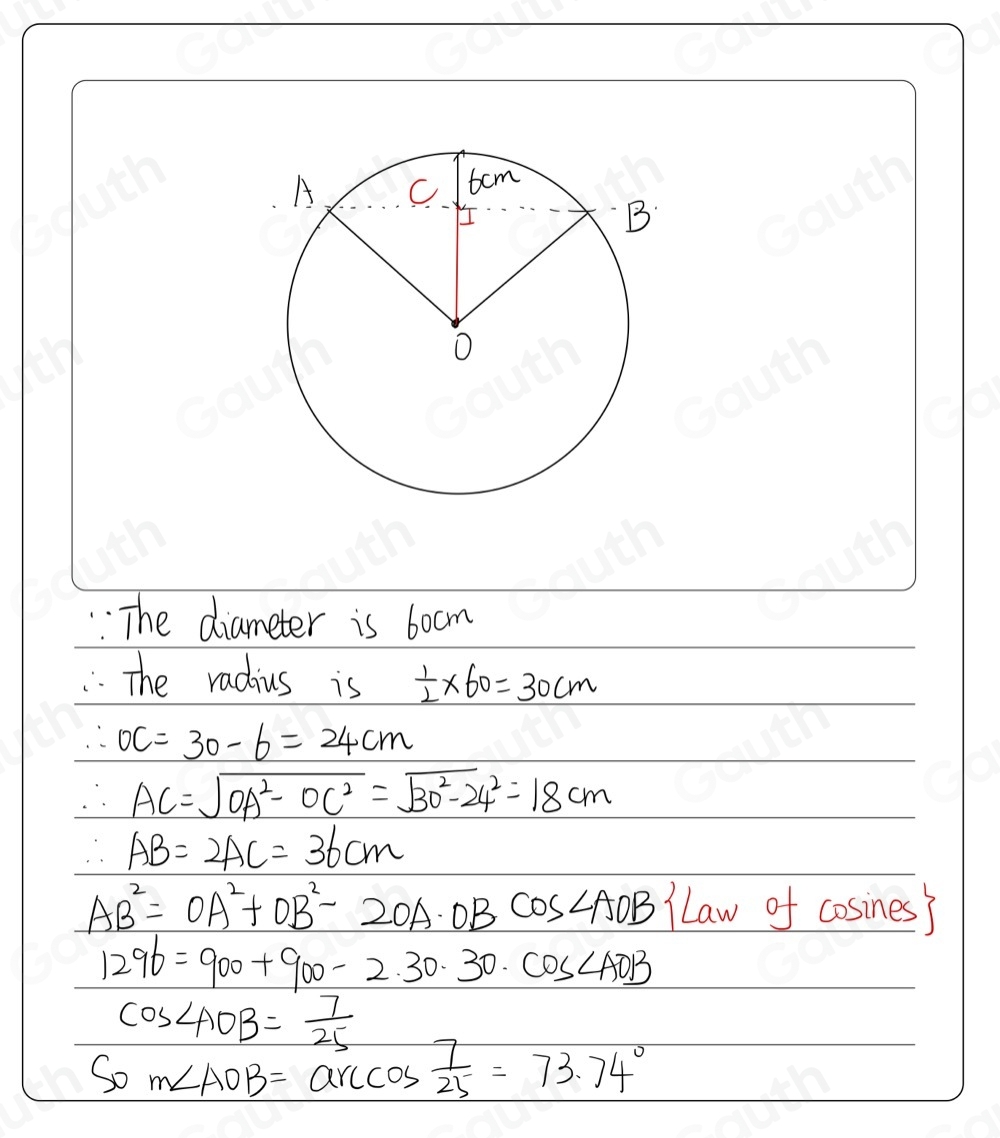 A C 6cm B
O
∵ The diameter is 60cm
∴ The radius is 1/2 × 60 = 30cm
∴ OC = 30 - 6 = 24cm
∴ AC = √(OA² - OC²) = √(30² - 24²) = 18cm
∴ AB = 2AC = 36cm
AB² = OA² + OB² - 2OA·OB cos∠AOB {Law of cosines}
1296 = 900 + 900 - 2·30·30·cos∠AOB
cos∠AOB = 7/25
So m∠AOB = arccos 7/25 = 73.74°